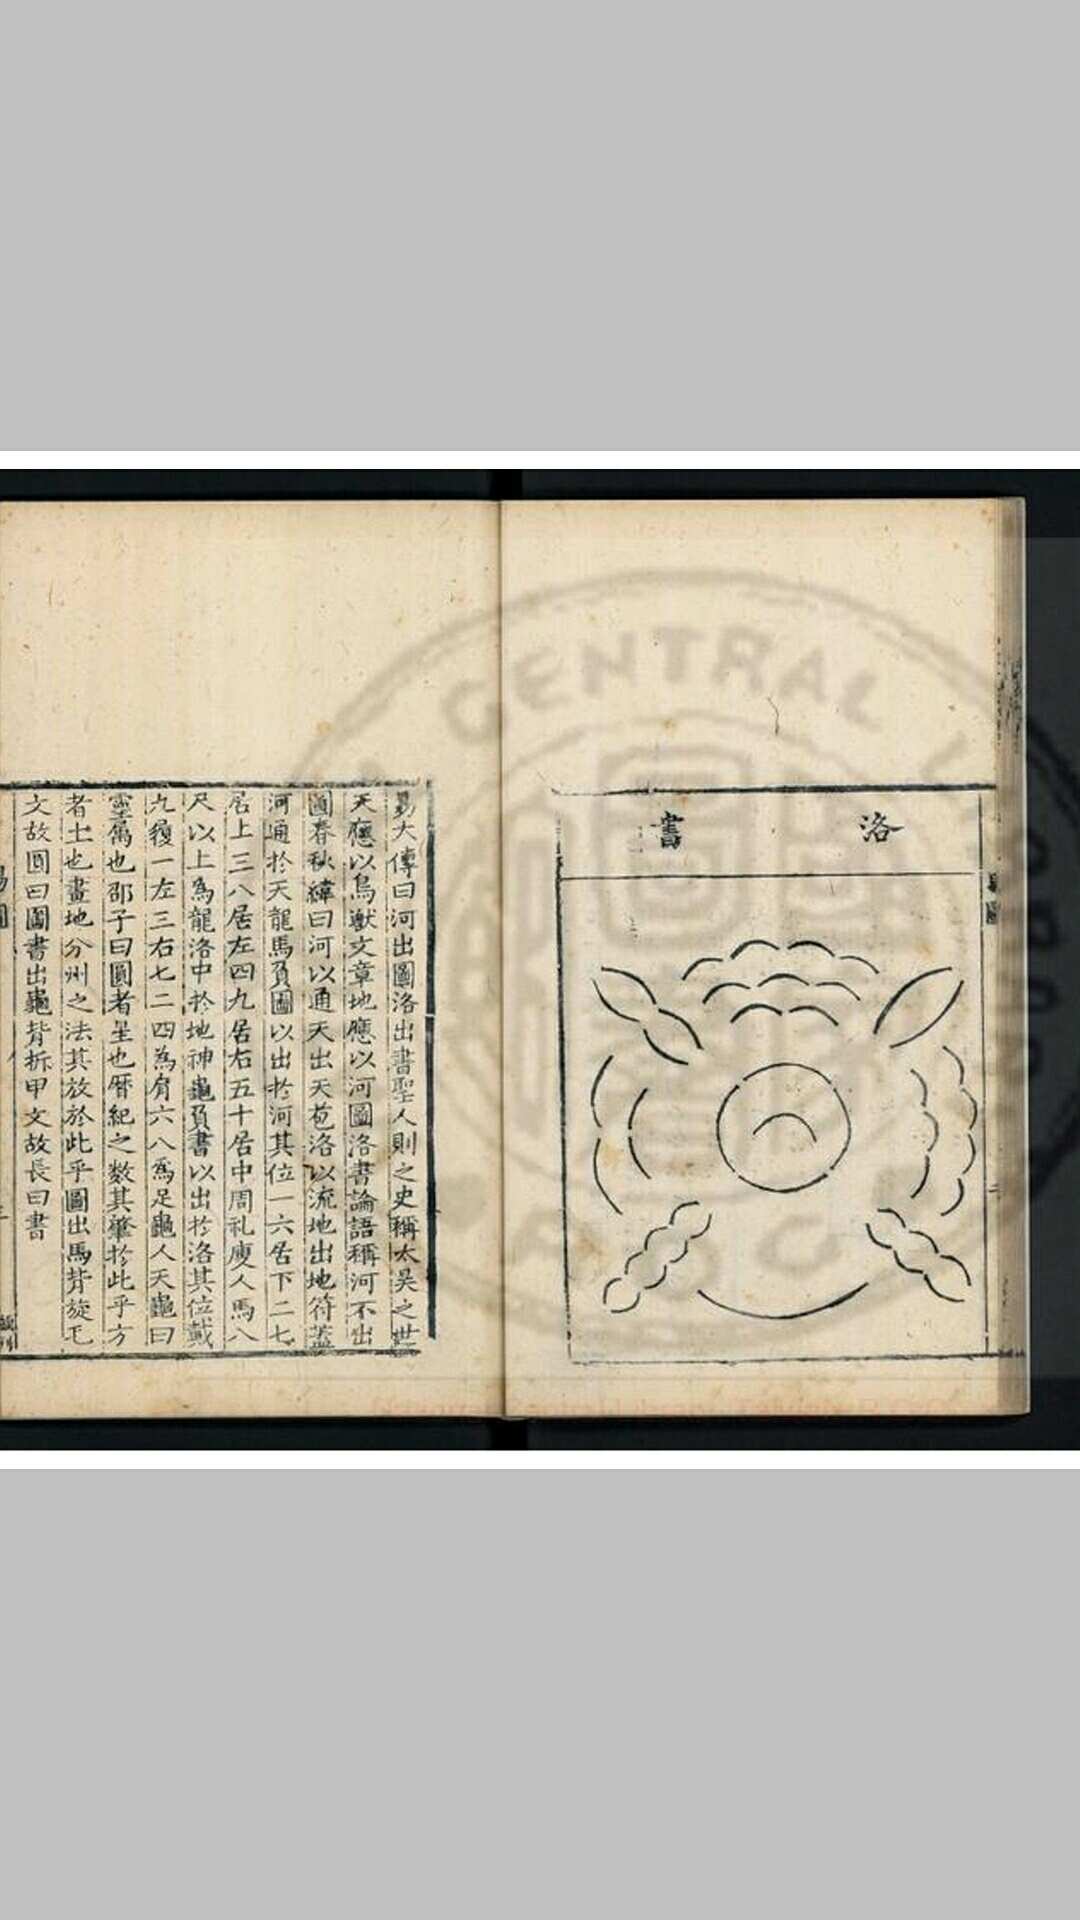 洛書
易大傳曰河出圖洛出書聖人則之史稱太昊之世
天應以鳥獸文章地應以河圖洛書論語稱河不出
圖春秋緯曰河以通天出天苞洛以流地出地符蓋
河通於天龍馬負圖以出於河其位一六居下二七
居上三八居左四九居右五十居中周礼廋人馬八
尺以上為龍洛中於地神龜負書以出於洛其位戴
九履一左三右七二四為肩六八為足龜人天龜曰
靈屬也邵子曰圓者星也曆紀之数其肇於此乎方
者土也畫地分州之法其放於此乎圖出馬背旋毛
文故圓曰圖書出龜背拆甲文故長曰書
CENTRAL